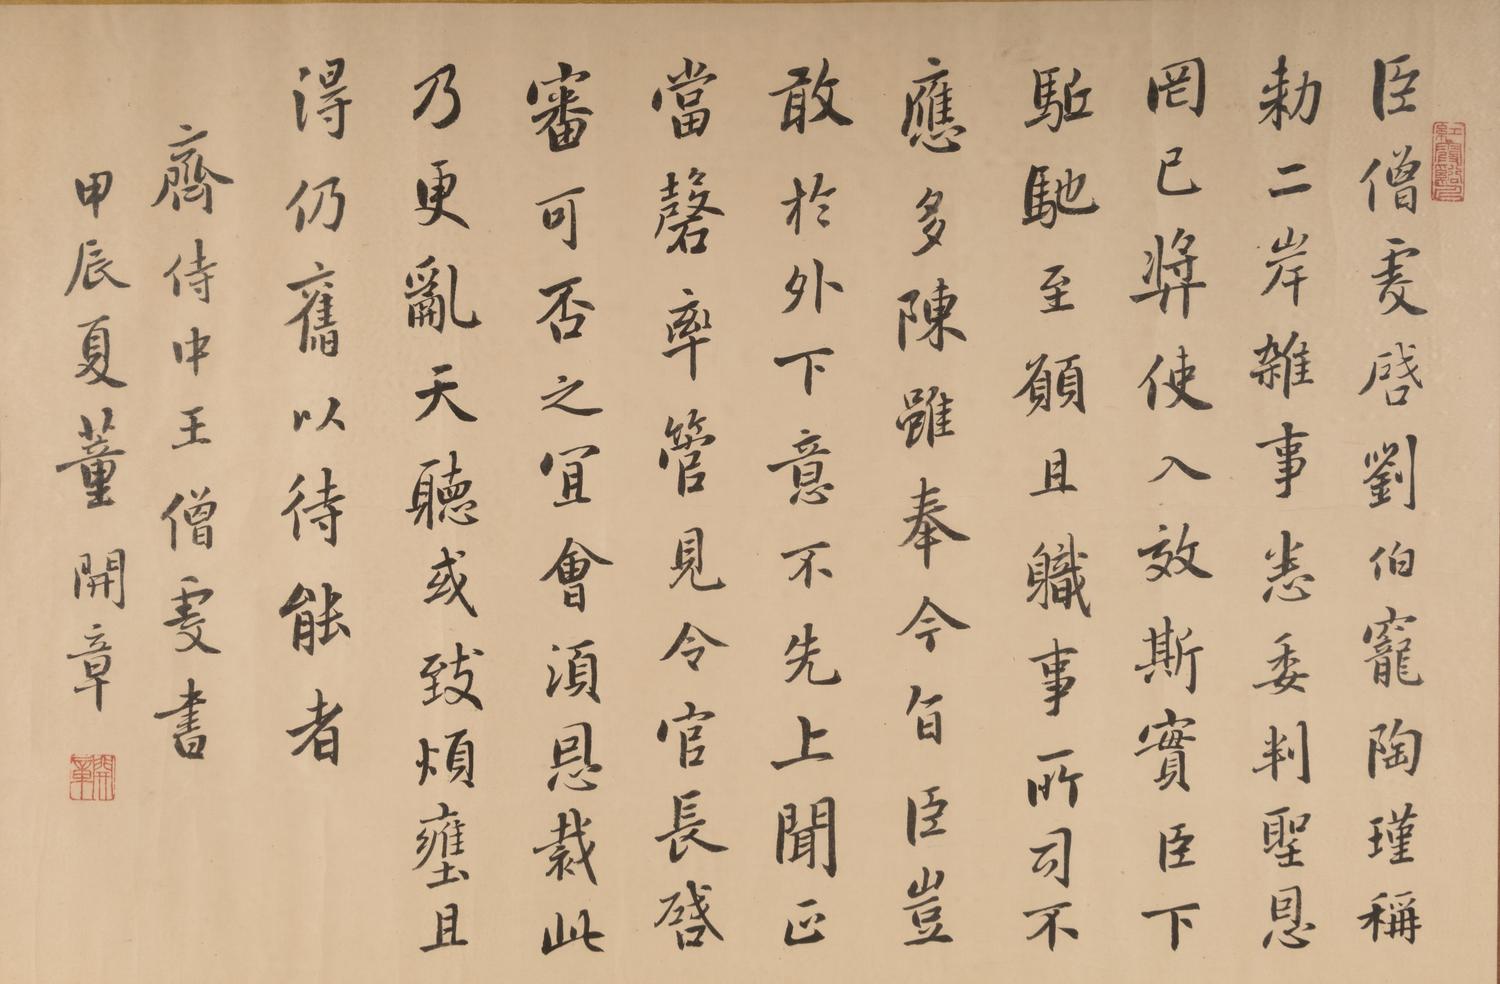 臣僧虔啓劉伯寵陶瑾稱
勅二岸雜事悉委判聖恩
罔已奬使入效斯實臣下
駈馳至願且職事所司不
應多陳雖奉今旨臣豈
敢於外下意不先上聞正
當罄率管見令官長啓
審可否之宜會須恩裁此
乃更亂天聽或致煩壅且
得仍舊以待能者
齊侍中王僧虔書
甲辰夏董開章
開章